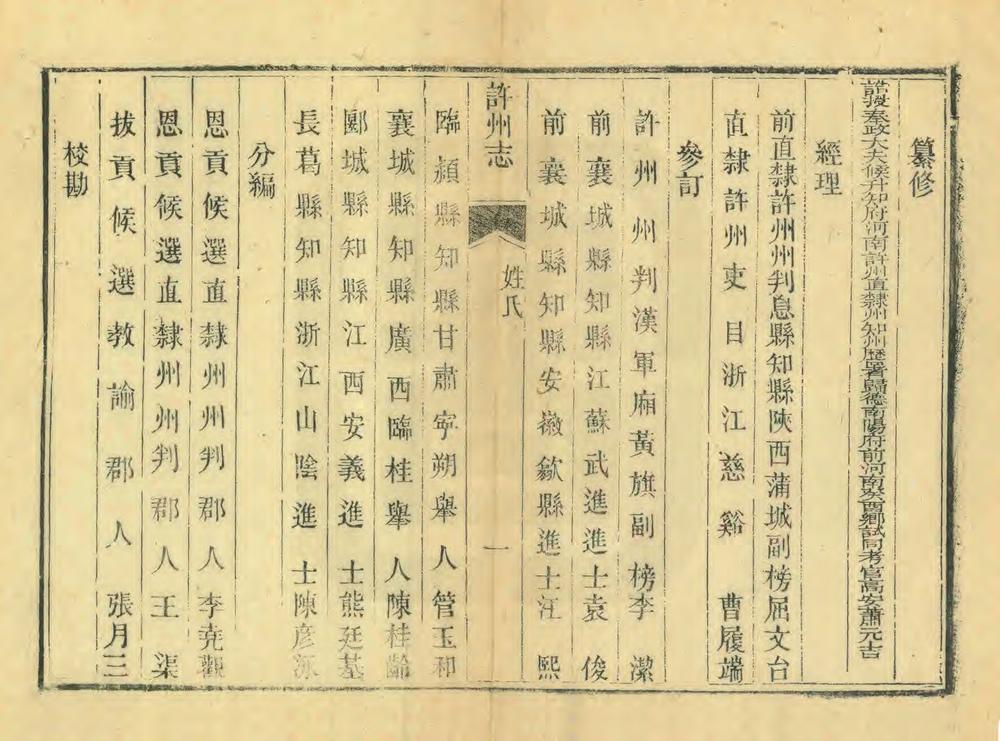 纂修
誥授奉政大夫候升知府河南許州直隸州知州歷署歸德南陽府前河南癸酉鄉試同考官高安蕭元吉
經理
前直隸許州州判息縣知縣陝西蒲城副榜屈文台
直隸許州吏目浙江慈谿曹履端
參訂
許州州判漢軍廂黃旗副榜李潔
前襄城縣知縣江蘇武進進士袁俊
前襄城縣知縣安徽歙縣進士汪熙
許州志
姓氏
一
臨潁縣知縣甘肅寧朔舉人管玉和
襄城縣知縣廣西臨桂舉人陳桂齡
郾城縣知縣江西安義進士熊廷基
長葛縣知縣浙江山陰進士陳彥泳
分編
恩貢候選直隸州州判郡人李堯觀
恩貢候選直隸州州判郡人王渠
拔貢候選教諭郡人張月三
校勘